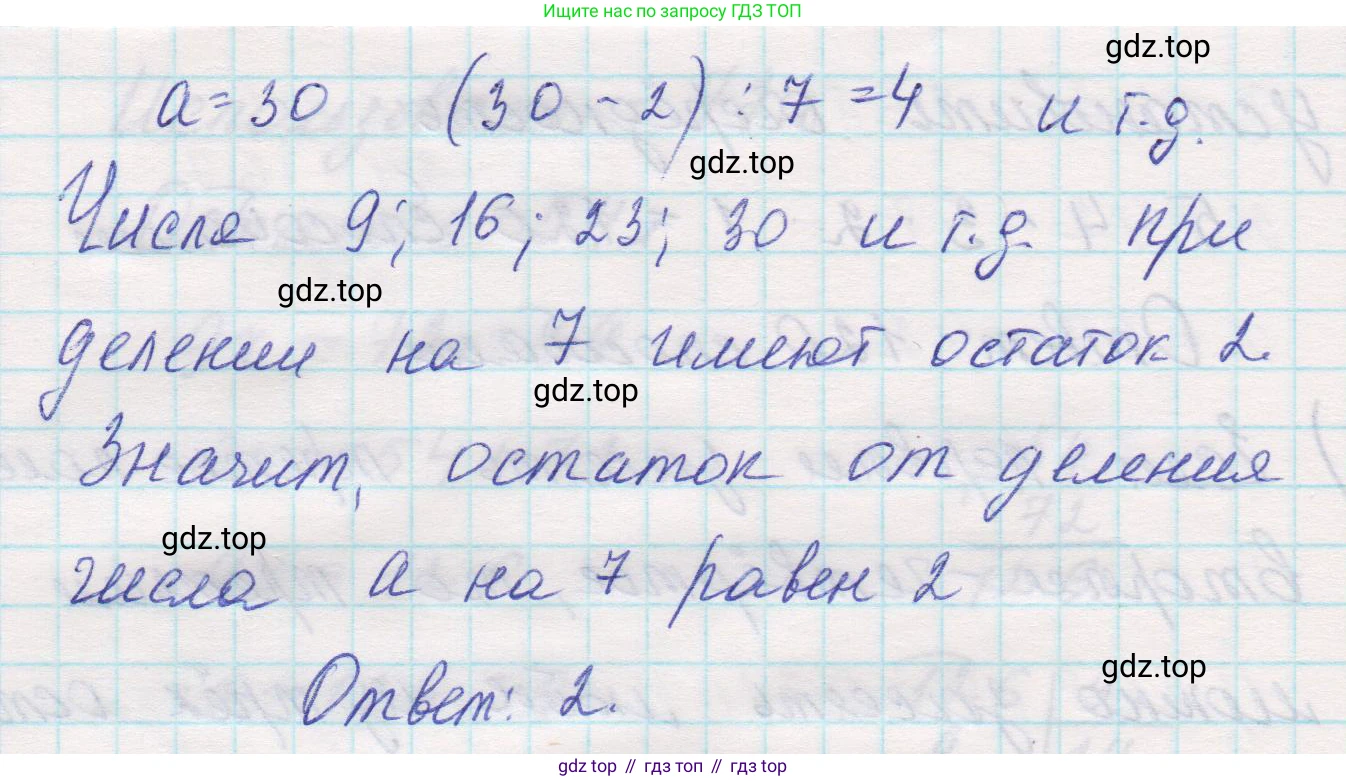 Ищите нас по запросу ГДЗ ТОП
gdz.top
a = 30 (30 - 2) : 7 = 4 и т.д.
gdz.top
Числа 9; 16; 23; 30 и т.д. при
gdz.top
делении на 7 имеют остаток 2.
gdz.top
Значит, остаток от деления
gdz.top
числа a на 7 равен 2
gdz.top
Ответ: 2.
gdz top // гдз топ // gdz top